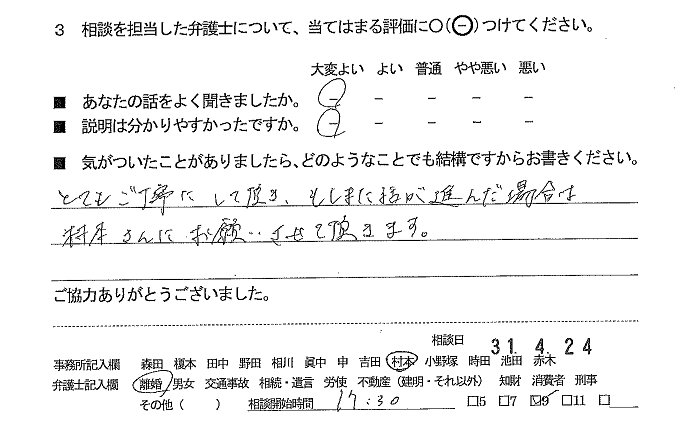 3 相談を担当した弁護士について、当てはまる評価に○(⊖)つけてください。
大変よい よい 普通 やや悪い 悪い
■ あなたの話をよく聞きましたか。 － － － － －
■ 説明は分かりやすかったですか。 － － － － －
■ 気がついたことがありましたら、どのようなことでも結構ですからお書きください。
とてもご丁寧にして頂き、もしまた話が進んだ場合は
村本さんにお願いさせて頂きます。
ご協力ありがとうございました。
相談日 31.4.24
事務所記入欄 森田 榎本 田中 野田 相川 眞中 申 吉田 村本 小野塚 時田 池田 赤木
弁護士記入欄 離婚 男女 交通事故 相続・遺言 労使 不動産（建明・それ以外） 知財 消費者 刑事
その他（ ） 相談開始時間 17:30 □5 □7 ☑9 □11 □